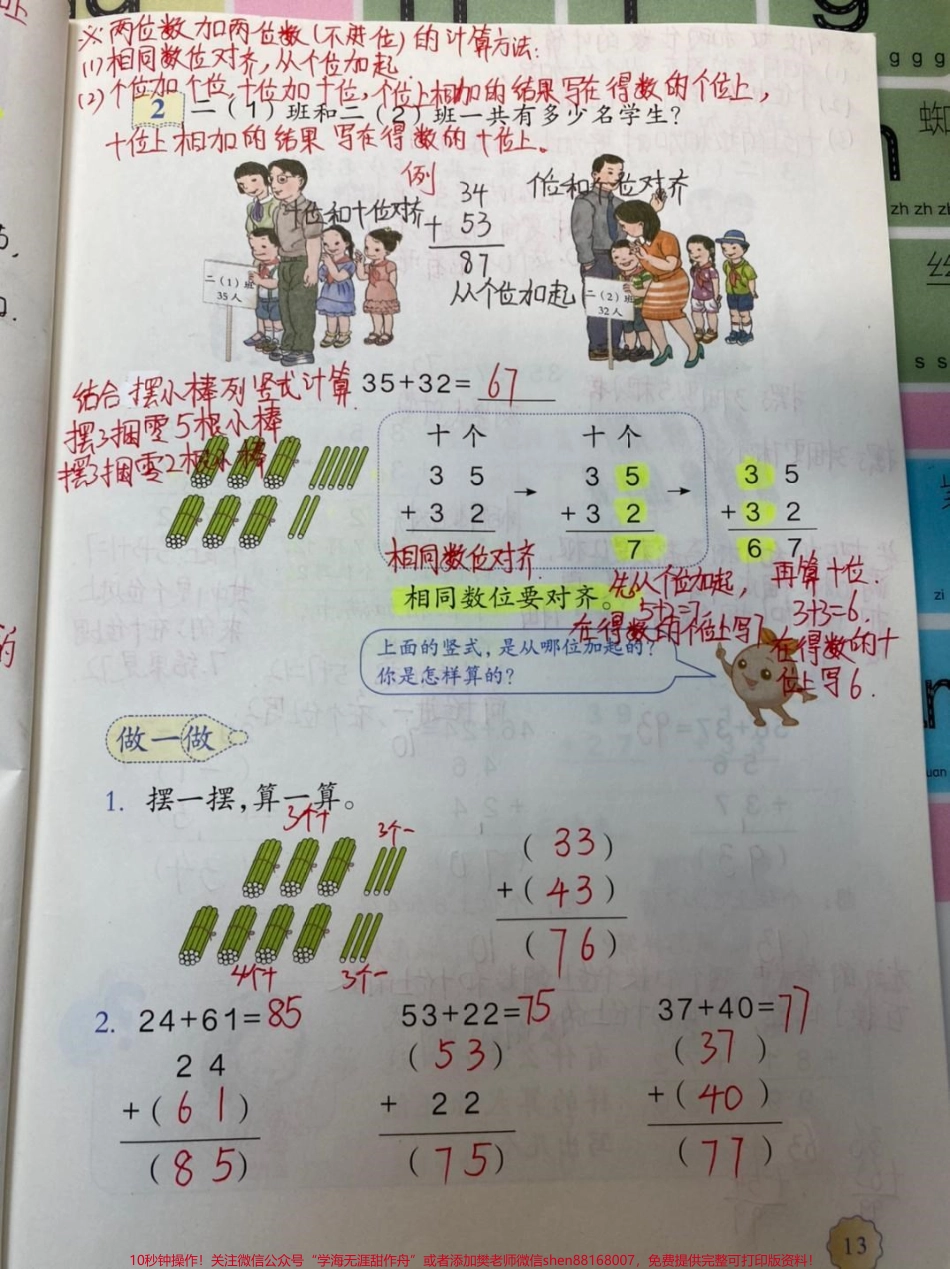 ※两位数加两位数(不进位)的计算方法:
(1)相同数位对齐,从个位加起.
(2)个位加个位,十位加十位,个位上相加的结果写在得数的个位上,
2 二(1)班和二(2)班一共有多少名学生?
十位上相加的结果写在得数的十位上。
例
十位和十位对齐
34
+ 53
87
个位和个位对齐
从个位加起
二(1)班
35人
二(2)班
32人
结合摆小棒列竖式计算.
35+32= 67
摆3捆零5根小棒
摆3捆零2根小棒
十 个
3 5
+ 3 2
相同数位对齐.
→
十 个
3 5
+ 3 2
7
→
3 5
+ 3 2
6 7
相同数位要对齐。
先从个位加起,
5+2=7
在得数的个位上写7
再算十位.
3+3=6.
在得数的十
位上写6.
上面的竖式,是从哪位加起的?
你是怎样算的?
做一做
1. 摆一摆,算一算。
3个十
3个一
4个十
3个一
(33)
+(43)
(76)
2. 24+61=85
2 4
+(6 1)
(8 5)
53+22=75
(5 3)
+ 2 2
(7 5)
37+40=77
(37)
+(40)
(77)
13
10秒钟操作!关注微信公众号“学海无涯甜作舟”或者添加樊老师微信shen88168007,免费提供完整可打印版资料!
g g g
zh zh zh
蜘
丝
s s
zi
uan